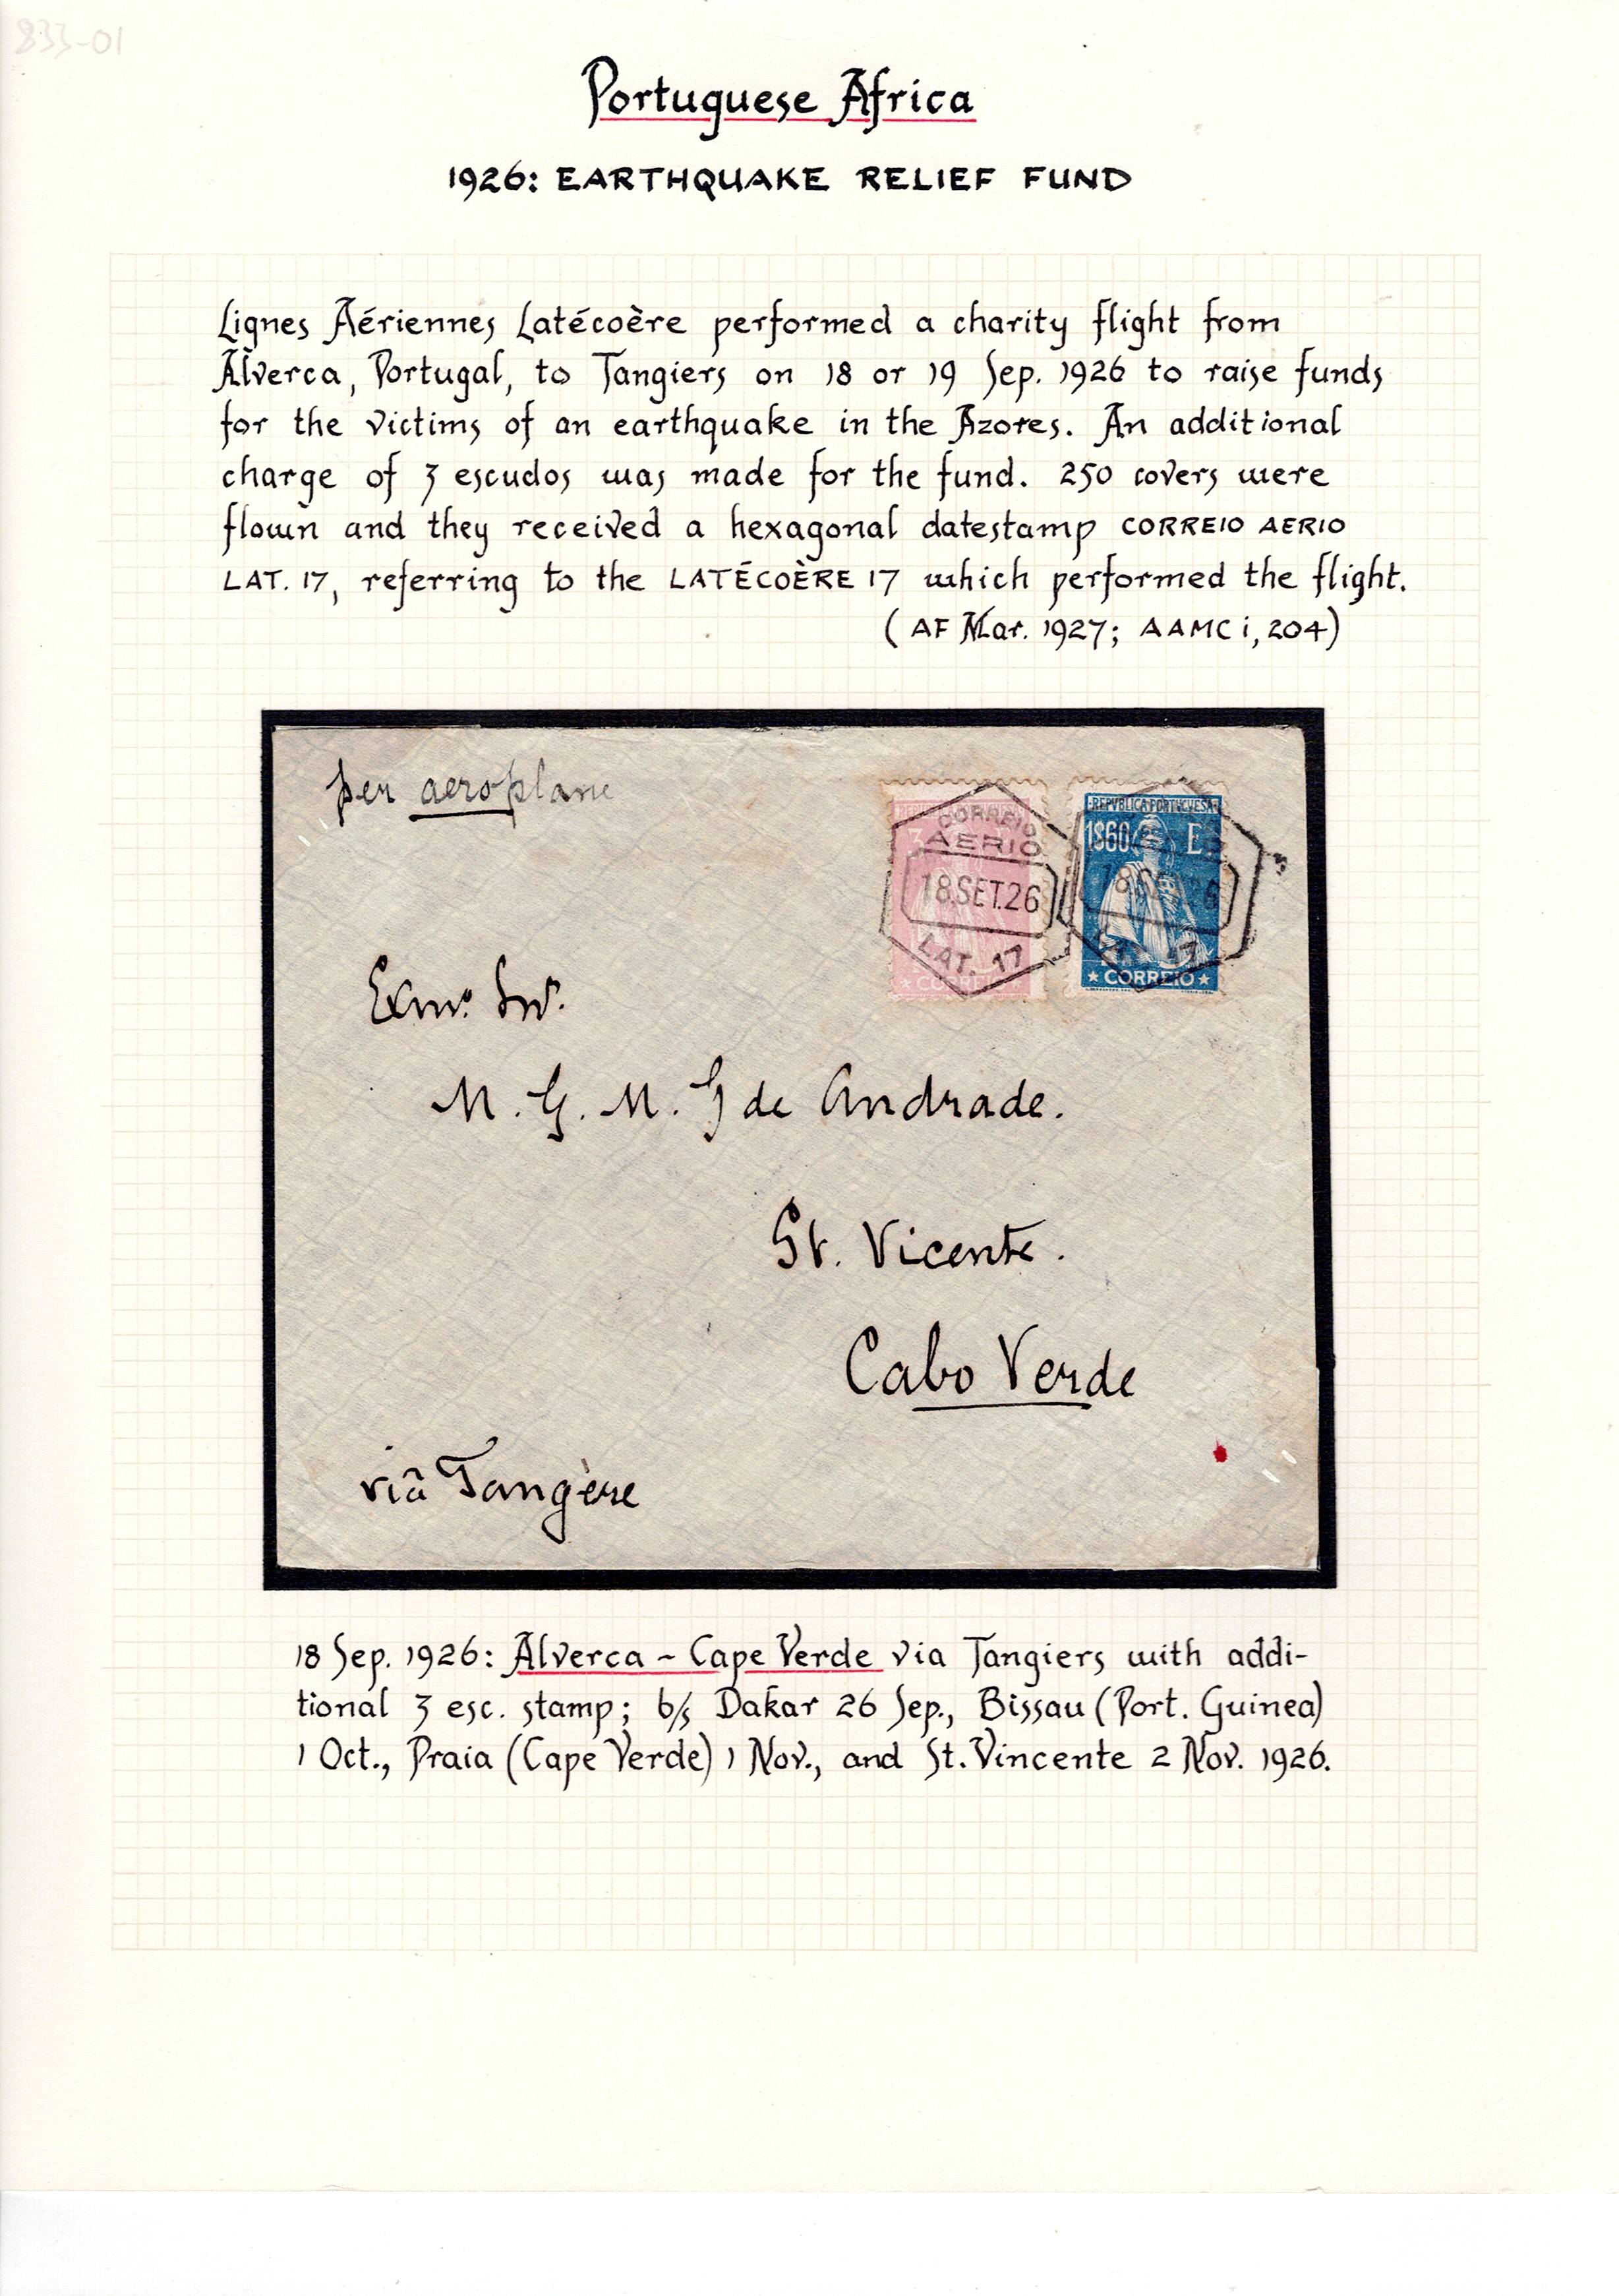 833-01
Portuguese Africa
1926: EARTHQUAKE RELIEF FUND
Lignes Aériennes Latécoère performed a charity flight from
Alverca, Portugal, to Tangiers on 18 or 19 Sep. 1926 to raise funds
for the victims of an earthquake in the Azores. An additional
charge of 3 escudos was made for the fund. 250 covers were
flown and they received a hexagonal datestamp CORREIO AERIO
LAT. 17, referring to the LATÉCOÈRE 17 which performed the flight.
(AF Mar. 1927; AAMC i, 204)
per aeroplane
CORREIO
AERIO
18.SET.26
LAT. 17
REPVBLICA PORTVGVESA
1$60 E
CORREIO
Exmo. Snr.
M. G. M. G de Andrade.
St. Vicente.
Cabo Verde
viâ Tangère
18 Sep. 1926: Alverca ~ Cape Verde via Tangiers with addi-
tional 3 esc. stamp; b/s Dakar 26 Sep., Bissau (Port. Guinea)
1 Oct., Praia (Cape Verde) 1 Nov., and St. Vincente 2 Nov. 1926.